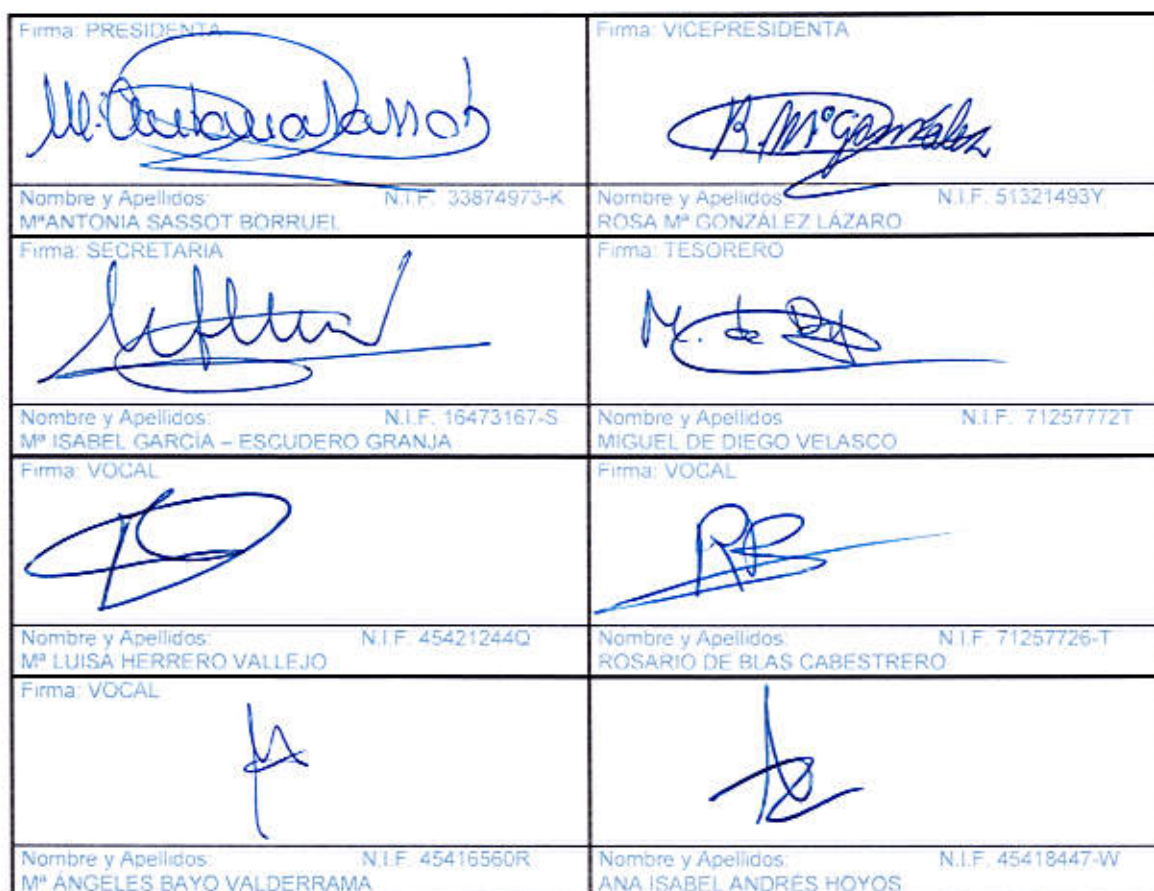 Firma: PRESIDENTA
Firma: VICEPRESIDENTA
Mª Antonia Sassot
R. Mª González
Nombre y Apellidos: N.I.F. 33874973-K
MªANTONIA SASSOT BORRUEL
Nombre y Apellidos N.I.F. 51321493Y
ROSA Mª GONZÁLEZ LÁZARO
Firma: SECRETARIA
Firma: TESORERO
M. de Dg
Nombre y Apellidos: N.I.F. 16473167-S
Mª ISABEL GARCÍA – ESCUDERO GRANJA
Nombre y Apellidos N.I.F. 71257772T
MIGUEL DE DIEGO VELASCO
Firma: VOCAL
Firma: VOCAL
RB
Nombre y Apellidos: N.I.F. 45421244Q
Mª LUISA HERRERO VALLEJO
Nombre y Apellidos: N.I.F. 71257726-T
ROSARIO DE BLAS CABESTRERO
Firma: VOCAL
Nombre y Apellidos: N.I.F. 45416560R
Mª ÁNGELES BAYO VALDERRAMA
Nombre y Apellidos: N.I.F. 45418447-W
ANA ISABEL ANDRÉS HOYOS